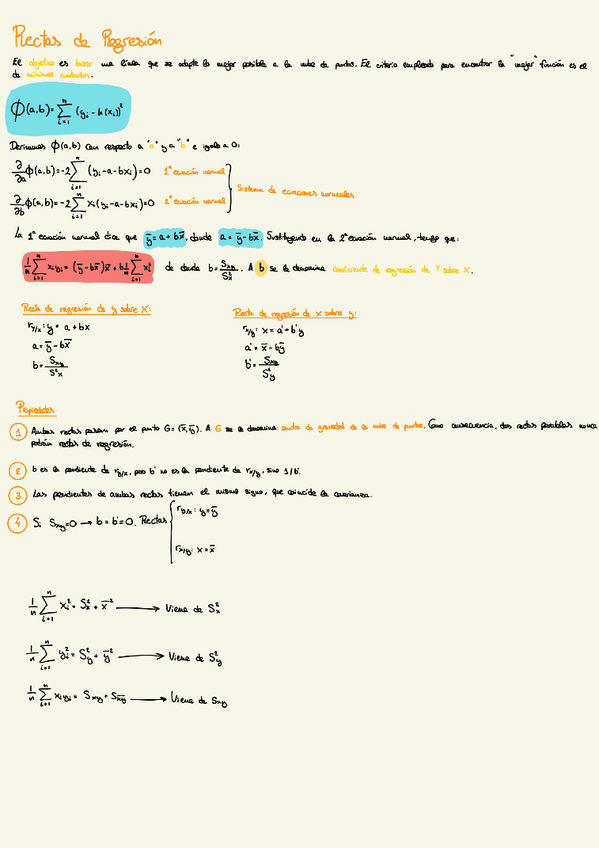 Rectas de Regresión
El objetivo es buscar una línea que se adapte lo mejor posible a la nube de puntos. El criterio empleado para encontrar la "mejor" función es el
de mínimos cuadrados.
ϕ(a,b) = ∑ᵢ₌₁ⁿ (yᵢ - h(xᵢ))²
Derivamos ϕ(a,b) con respecto a "a" y a "b" e igualo a 0:
∂/∂a ϕ(a,b) = -2 ∑ᵢ₌₁ⁿ (yᵢ - a - bxᵢ) = 0 1ª ecuación normal
Sistema de ecuaciones normales
∂/∂b ϕ(a,b) = -2 ∑ᵢ₌₁ⁿ xᵢ(yᵢ - a - bxᵢ) = 0 2ª ecuación normal
La 1ª ecuación normal dice que ȳ = a + bx̄, donde a = ȳ - bx̄. Sustituyendo en la 2ª ecuación normal, tengo que:
1/n ∑ᵢ₌₁ⁿ xᵢyᵢ = (ȳ - bx̄)x̄ + b 1/n ∑ᵢ₌₁ⁿ xᵢ² de donde b = Sxy/S²x. A b se le denomina coeficiente de regresión de Y sobre X.
Recta de regresión de y sobre x:
r y/x: y = a + bx
a = ȳ - bx̄
b = Sxy/S²x
Recta de regresión de x sobre y:
r x/y: x = a' + b'y
a' = x̄ - bȳ
b' = Sxy/S²y
Propiedades
1 Ambas rectas pasan por el punto G = (x̄, ȳ). A G se le denomina centro de gravedad de la nube de puntos. Como consecuencia, dos rectas paralelas nunca
podrán rectas de regresión.
2 b es la pendiente de r y/x, pero b' no es la pendiente de r x/y, sino 1/b'.
3 Las pendientes de ambas rectas tienen el mismo signo, que coincide la covarianza.
4 Si Sxy = 0 → b = b' = 0. Rectas
r y/x: y = ȳ
r x/y: x = x̄
1/n ∑ᵢ₌₁ⁿ xᵢ² = S²x + x̄² → Viene de S²x
1/n ∑ᵢ₌₁ⁿ yᵢ² = S²y + ȳ² → Viene de S²y
1/n ∑ᵢ₌₁ⁿ xᵢyᵢ = Sxy + Sx̄ȳ → Viene de Sxy